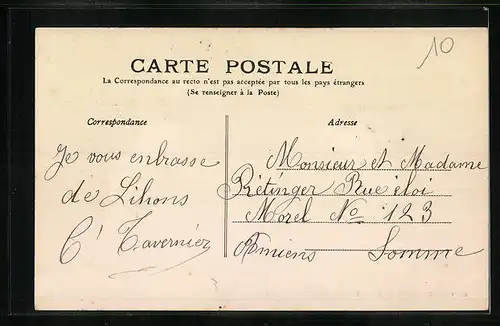 10
CARTE POSTALE
La Correspondance au recto n'est pas acceptée par tous les pays étrangers
(Se renseigner à la Poste)
Correspondance
Je vous enbrasse
de Lihons
C' Tavernier
Adresse
Monsieur et Madame
Rétinger Rue éloi
Morel No 123
Amiens Somme